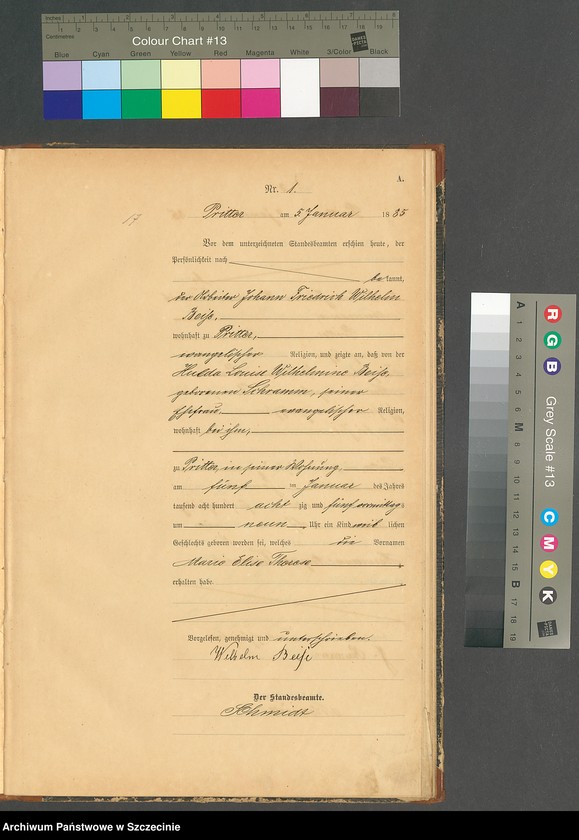 Inches 1 2 3 4 5 6 7 8
Centimetres 1 2 3 4 5 6 7 8 9 10 11 12 13 14 15 16 17 18 19
Colour Chart #13
Blue Cyan Green Yellow Red Magenta White 3/Color Black
A.
Nr. 1.
17
Pritter am 5 Januar 1885
Vor dem unterzeichneten Standesbeamten erschien heute, der
Persönlichkeit nach
bekannt,
der Arbeiter Johann Friedrich Wilhelm
Beiße,
wohnhaft zu Pritter,
evangelischer Religion, und zeigte an, daß von der
Hulda Louise Wilhelmine Beiße,
geborenen Schramm, seiner
Ehefrau evangelischer Religion,
wohnhaft bei ihm,
zu Pritter, in seiner Wohnung
am fünf ten Januar des Jahres
tausend acht hundert acht zig und fünf vormittags
um neun Uhr ein Kind weib lichen
Geschlechts geboren worden sei, welches die Vornamen
Marie Elise Therese
erhalten habe.
Vorgelesen, genehmigt und unterschrieben.
Wilhelm Beiße
Der Standesbeamte.
Schmidt
R G B
Grey Scale #13
C M Y K
A 1 2 3 4 5 6 M 8 9 10 11 12 13 14 15 B 17 18 19
Archiwum Państwowe w Szczecinie